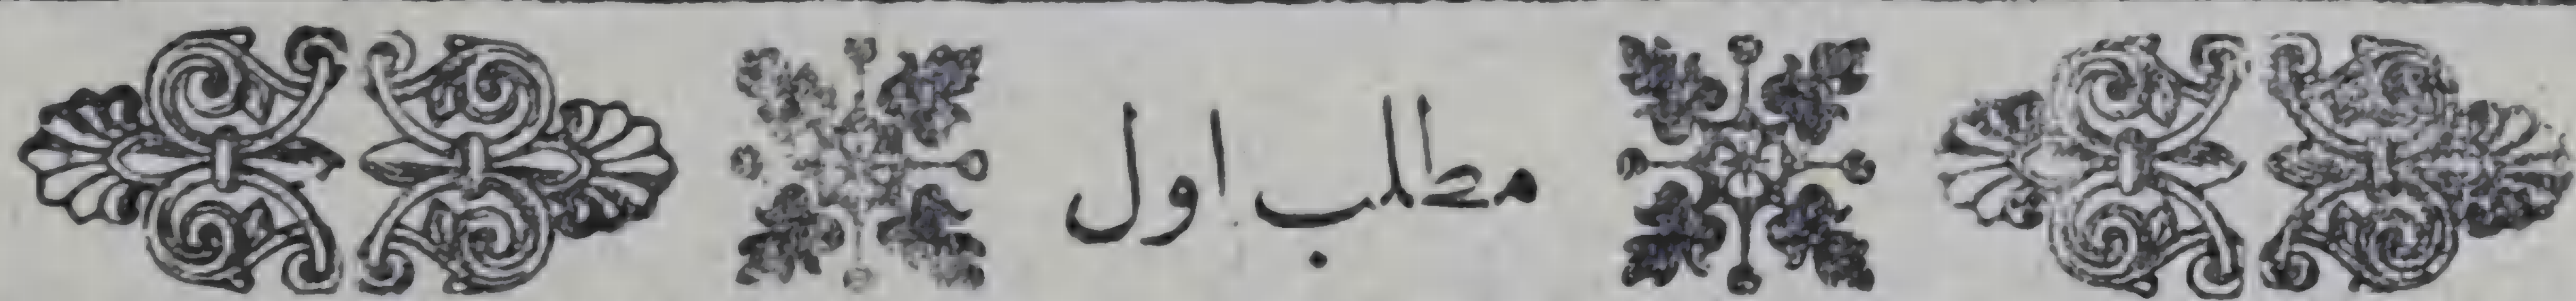 مطلب اول